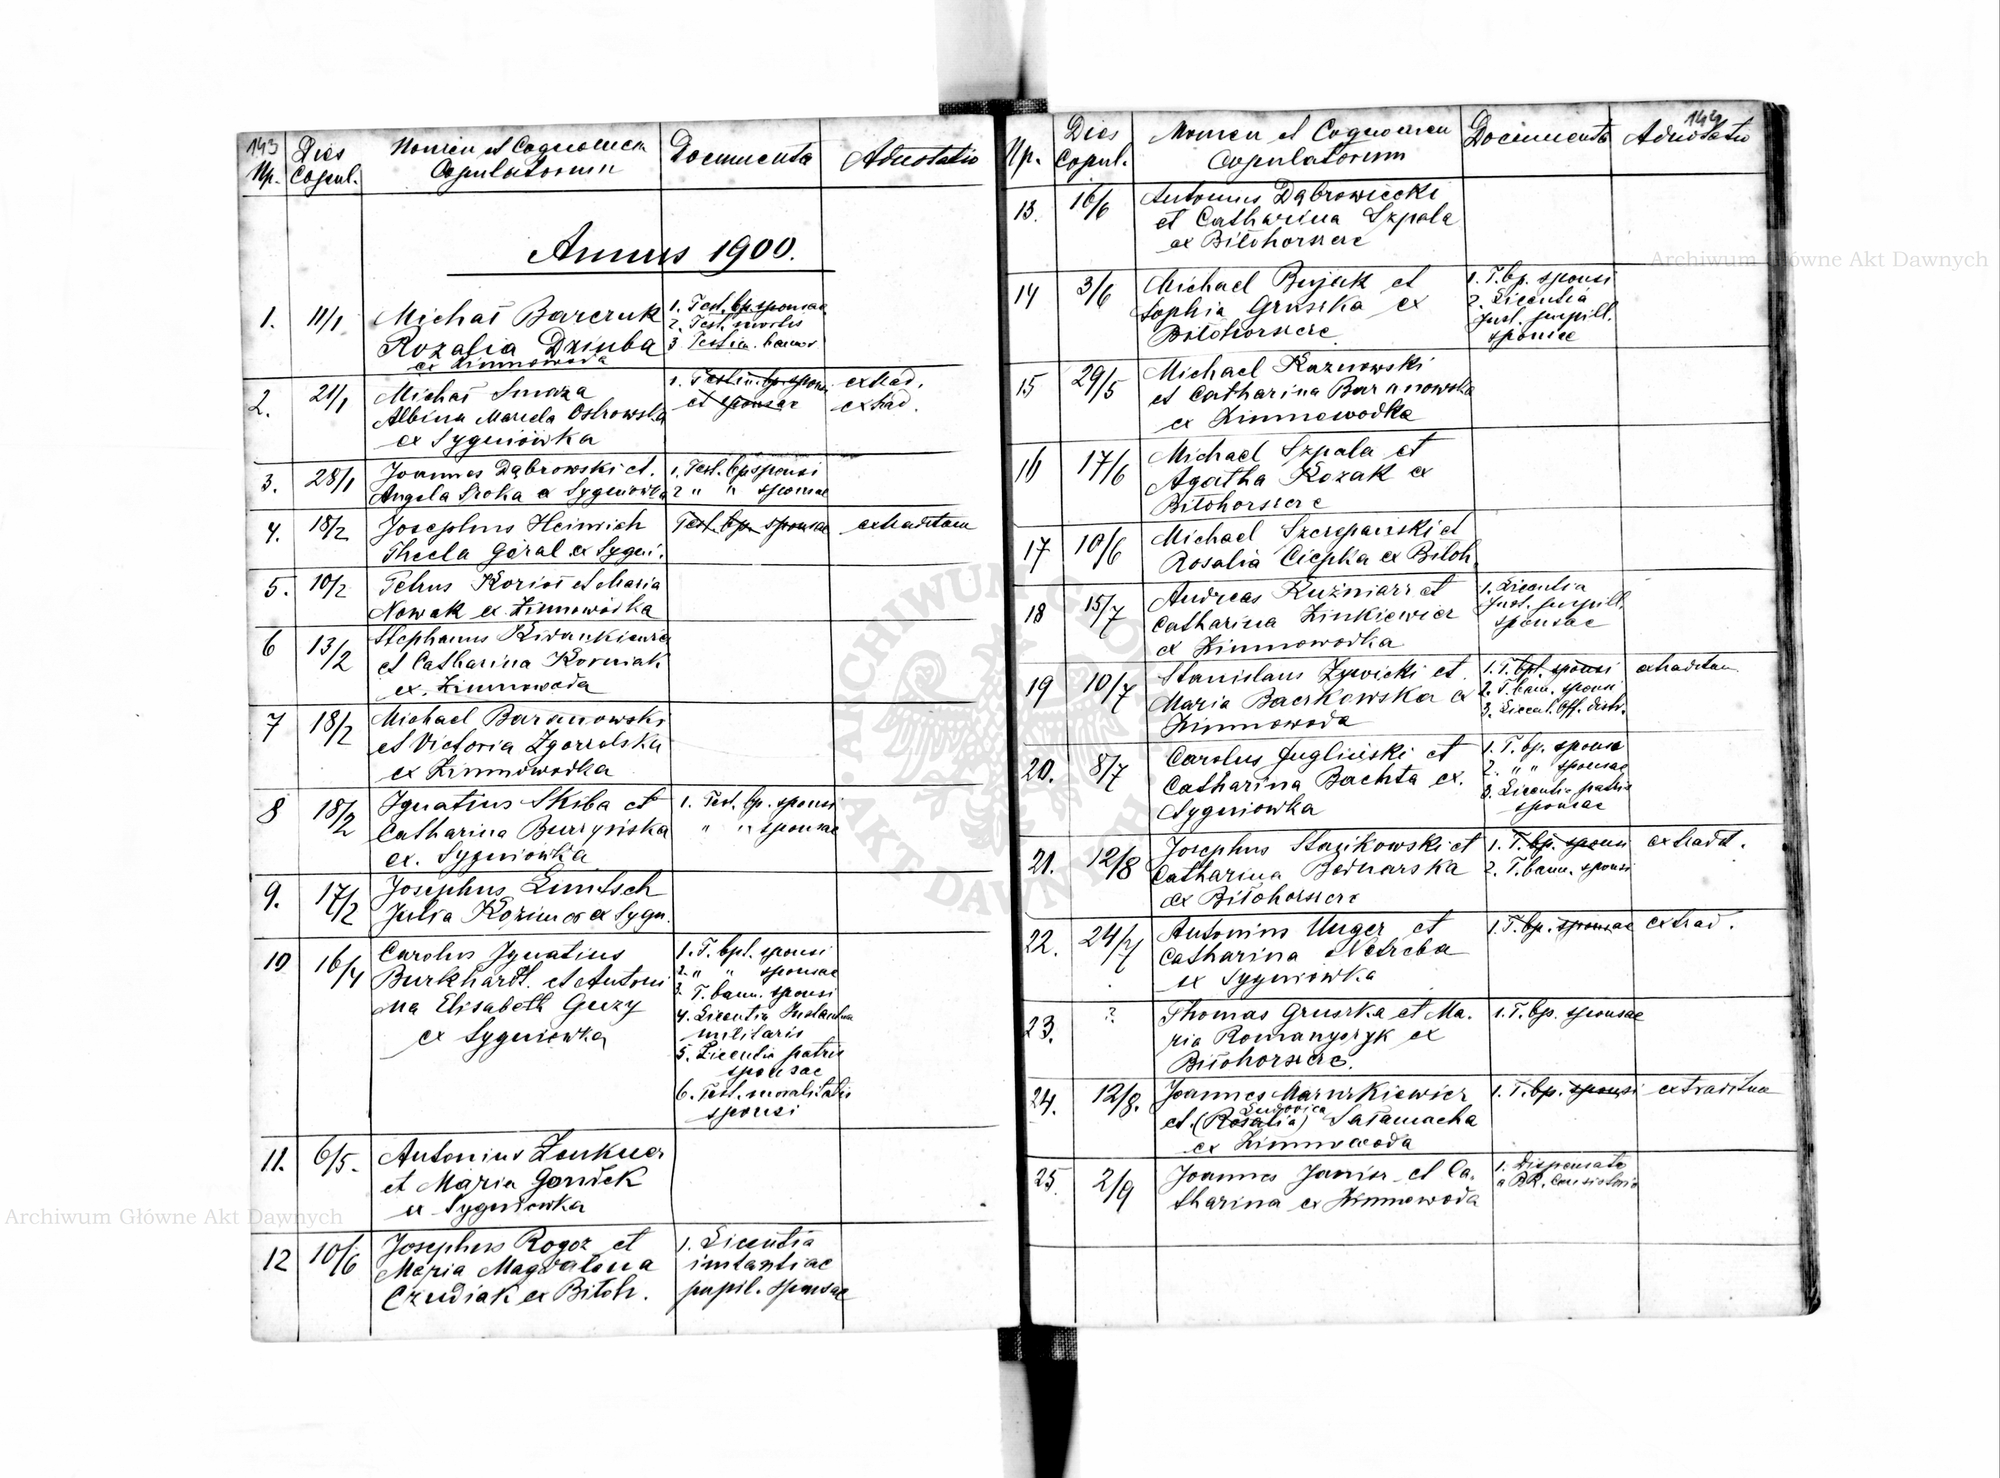 143
Np.
Dies
Copul.
Nomen et Cognomen
Copulatorum
Documenta
Adnotatio
Annus 1900.
1.
11/1
Michał Barczuk
Rozalia Dziuba
ex Zimnowoda
1. Test. bp. sponsae
2. Test. mortis
3 Testim. bannor
2.
21/1
Michał Smaza
Albina Marcela Ostrowska
ex Sygniówka
1. Testim. bp. spons
et sponsae
extrad.
extrad.
3.
28/1
Joannes Dąbrowski et.
Angela Sroka ex Sygniowka
1. Test. bp sponsi
2 " " sponsae
4.
18/2
Josephus Heinrich
Thecla Góral ex Sygni.
Test. bp. sponsae
extraditum
5.
10/2
Petrus Kozioł et Maria
Nowak ex Zimnowódka
6
13/2
Stephanus
et Catharina Korniak
ex. Zimnowoda
7
18/2
Michael Baranowski
et Victoria Zgorzelska
ex Zimnowodka
8
18/2
Ignatius Skiba et
Catharina Burzyńska
ex. Sygniowka
1. Test. bp. sponsi
" " sponsae
9.
17/2
Josephus
Julia ex Sygn.
10
16/4
Carolus Ignatius
Burkhardt. et Antoni
na Elisabeth Guzy
ex Sygniowka
1. T. bpt. sponsi
2. " " sponsae
3. T. bann. sponsi
4. Licentia
militaris
5. Licentia patris
sponsae
6. Test. moralitatis
sponsi
11.
6/5.
Antonius
et Maria
ex Sygniowka
12
10/6
Josephus Rogoz et
Maria Magdalena
Czudiak ex Biłoh.
1. Licentia
instantiae
pupil. sponsae
144
Np.
Dies
Copul.
Nomen et Cognomen
Copulatorum
Documenta
Adnotatio
13.
16/6
Antonius Dąbrowiecki
et Catharina Szpala
ex Biłohorszcze
14
3/6
Michael Bujak et
Sophia Gruszka ex
Biłohorszcze
1. T. bp. sponsi
2. Licentia
Inst. pupill.
sponsae
15
29/5
Michael Kaznowski
et Catharina Baranowska
ex Zimnowodka
16
17/6
Michael Szpala et
Agatha Kozak ex
Biłohorszcze
17
10/6
Michael Szczepański et
Rosalia Ciepka ex Biłoh.
18
15/7
Andreas Kuźniarz et
Catharina Zinkiewicz
ex Zimnowodka
1. Licentia
Inst. pupill.
sponsae
19
10/7
Stanislaus Żywicki et.
Maria Baczkowska ex
Zimnowoda
1. T. bpt. sponsi
2. T. bann. sponsi
3. Licent. Off. distr.
extraditum
20.
8/7
Carolus Jugliński et
Catharina Bachta ex.
Sygniowka
1. T. bp. sponsi
2. " " sponsae
3. Licentia patris
sponsae
21.
12/8
Josephus Stasikowski et
Catharina Bednarska
ex Biłohorszcze
1. T. bp. sponsi
2. T. bann. sponsi
extradit.
22.
24/7
Antonius Unger et
Catharina Netreba
ex Sygniowka
1. T. bp. sponsae
extrad.
23.
?
Thomas Gruszka et Ma-
ria Romanyszyk ex
Biłohorszcze.
1. T. bp. sponsae
24.
12/8.
Joannes Mazurkiewicz
Ludovica
et. (Rosalia) Sałamacha
ex Zimnowoda
1. T. bp. sponsi
extraditum
25.
2/9
Joannes Janior et Ca-
tharina ex Zimnowoda
1. Dispensatio
a
Archiwum Główne Akt Dawnych
Archiwum Główne Akt Dawnych
ARCHIWUM GŁÓWNE AKT DAWNYCH